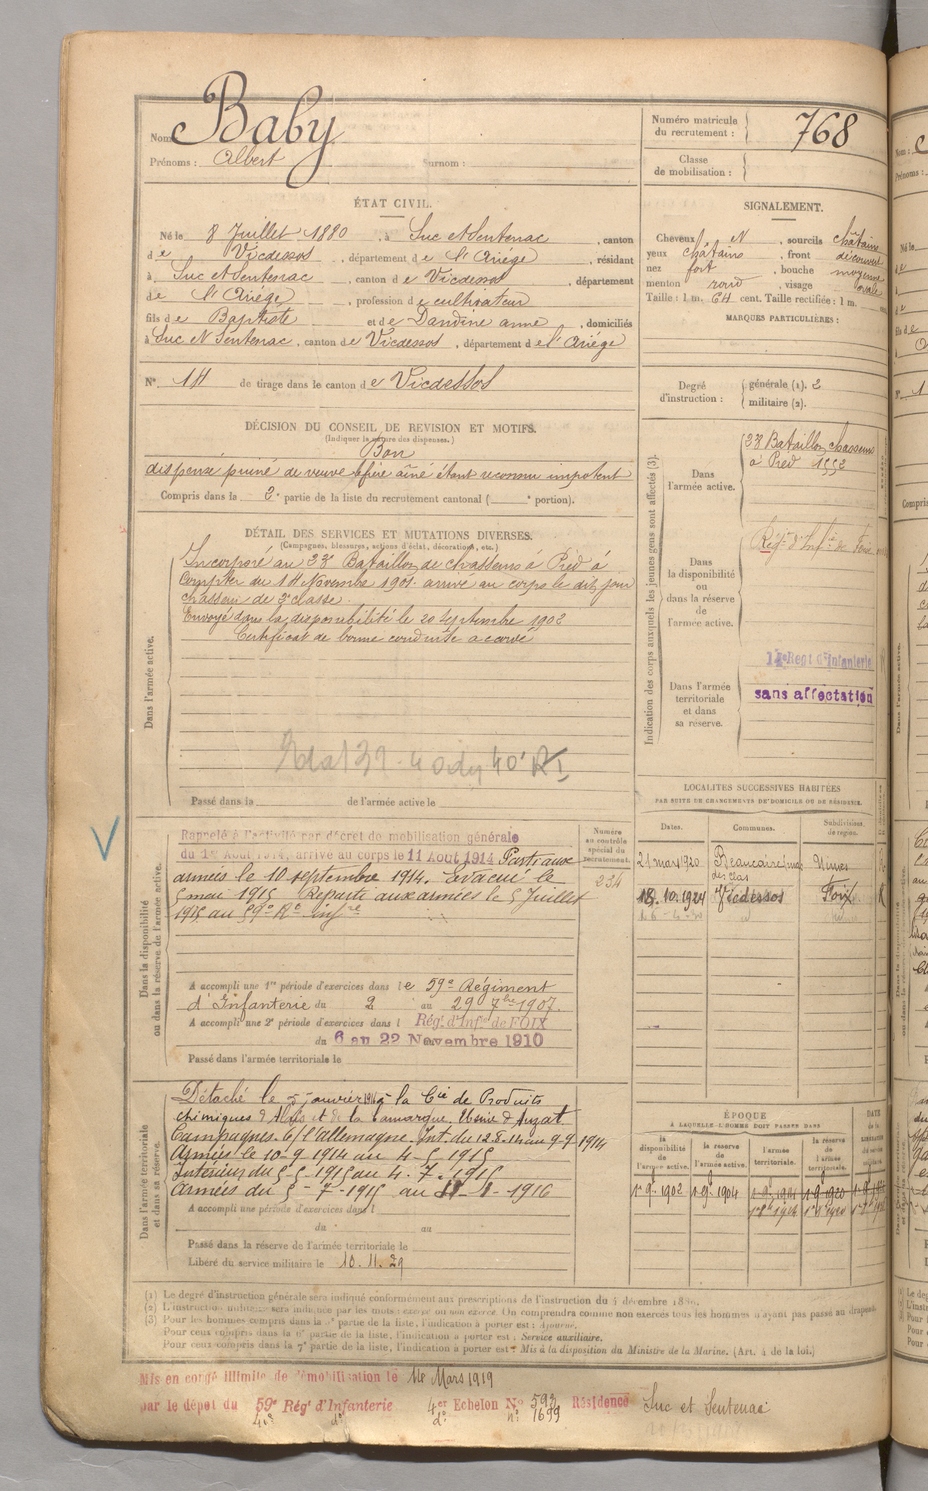 Nom: Baby
Prénoms : Albert Surnom :
Numéro matricule du recrutement : 768
Classe de mobilisation :
ÉTAT CIVIL.
Né le 8 Juillet 1880, à Suc et Sentenac, canton
de Vicdessos, département de l'Ariège, résidant
à Suc et Sentenac, canton de Vicdessos, département
de l'Ariège, profession de cultivateur
fils de Baptiste et de Dandine anne, domiciliés
à Suc et Sentenac, canton de Vicdessos, département de l'Ariège
N° 14 de tirage dans le canton de Vicdessos
SIGNALEMENT.
Cheveux N, sourcils châtains
yeux châtains, front découvert
nez fort, bouche moyenne
menton rond, visage ovale
Taille : 1 m. 64 cent. Taille rectifiée : 1 m.
MARQUES PARTICULIÈRES :
Degré d'instruction : générale (1). 2
militaire (2).
DÉCISION DU CONSEIL DE REVISION ET MOTIFS.
(Indiquer la nature des dispenses.)
Bon
dispensé puiné de veuve frère aîné étant reconnu impotent
Compris dans la 2e partie de la liste du recrutement cantonal ( e portion).
DÉTAIL DES SERVICES ET MUTATIONS DIVERSES.
(Campagnes, blessures, actions d'éclat, décorations, etc.)
Dans l'armée active.
Incorporé au 23e Bataillon de chasseurs à Pied à
compter du 14 Novembre 1901. arrivé au corps le dit jour
chasseur de 2e classe.
Envoyé dans la disponibilité le 20 Septembre 1902
Certificat de bonne conduite accordé
40e RI
Passé dans la de l'armée active le
Indication des corps auxquels les jeunes gens sont affectés (3).
Dans l'armée active.
23 Bataillon chasseurs
à Pied 1552
Dans la disponibilité ou dans la réserve de l'armée active.
Régt d'Infie de Foix
Dans l'armée territoriale et dans sa réserve.
14e Régt d'Infanterie
sans affectation
Dans la disponibilité ou dans la réserve de l'armée active.
Rappelé à l'activité par décret de mobilisation générale
du 1er Août 1914, arrivé au corps le 11 Août 1914 Parti aux
armées le 10 septembre 1914. Evacué le
5 mai 1915 Reparti aux armées le 5 Juillet
1915 au 59e Rt infie
Numéro au contrôle spécial du recrutement.
234
A accompli une 1re période d'exercices dans le 59e Régiment
d'Infanterie du 2 au 29 7bre 1907.
A accompli une 2e période d'exercices dans l Régt d'Infie de FOIX
du 6 au 22 Novembre 1910
Passé dans l'armée territoriale le
LOCALITÉS SUCCESSIVES HABITÉES
PAR SUITE DE CHANGEMENTS DE DOMICILE OU DE RÉSIDENCE.
Dates. Communes. Subdivisions de région.
21 mars 1920 Beaucaire Nimes
18.10.1924 Vicdessos Foix
Dans l'armée territoriale et dans sa réserve.
Détaché le 5 janvier 1916 à la Cie de Produits
chimiques d'Alais et de la Camargue. Usine d'Auzat
Campagnes c/ l'allemagne. Int. du 12.8.14 au 9-9 1914
Armées le 10-9 1914 au 4-5 1915
Intérieur du 5-5 1915 au 4-7-1915
Armées du 5-7-1915 au 1-1916
A accompli une période d'exercices dans l
du au
Passé dans la réserve de l'armée territoriale le
Libéré du service militaire le 10.11.29
ÉPOQUE
À LAQUELLE L'HOMME DOIT PASSER DANS
la disponibilité de l'armée active. la réserve de l'armée active. l'armée territoriale. la réserve de l'armée territoriale.
1er 9bre 1902 1er 9bre 1904
(1) Le degré d'instruction générale sera indiqué conformément aux prescriptions de l'instruction du 4 décembre
(2) L'instruction militaire sera indiquée par les mots : exercé ou non exercé. On comprendra comme non exercés tous les hommes n'ayant pas passé au drapeau.
(3) Pour les hommes compris dans la partie de la liste, l'indication à porter est : Ajourné.
Pour ceux compris dans la 6e partie de la liste, l'indication à porter est : Service auxiliaire.
Pour ceux compris dans la 7e partie de la liste, l'indication à porter est : Mis à la disposition du Ministre de la Marine. (Art. 4 de la loi.)
Mis en congé illimité de démobilisation le 14 Mars 1919
par le dépôt du 59e Régt d'Infanterie 4er Echelon N° 592 Résidence Suc et Sentenac
do do n° 1699